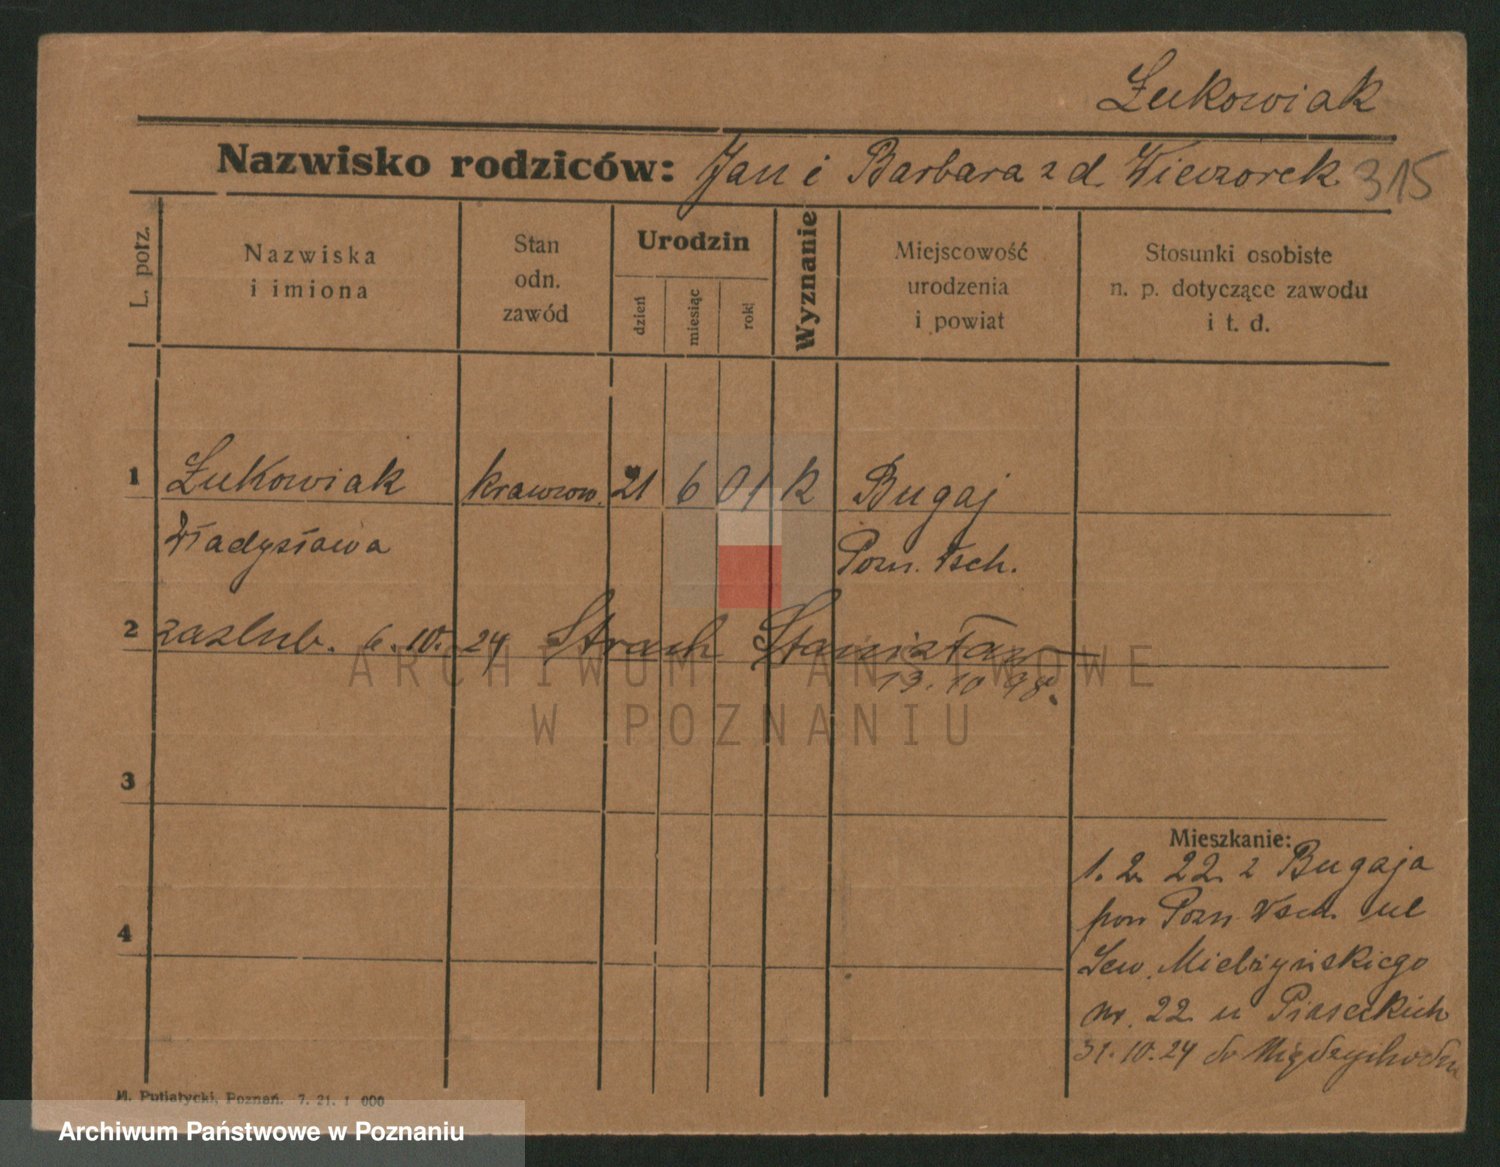 Żukowiak
Nazwisko rodziców: Jan i Barbara z d. Wieczorek 315
L. porz.
Nazwiska
i imiona
Stan
odn.
zawód
Urodzin
dzień
miesiąc
rok
Wyznanie
Miejscowość
urodzenia
i powiat
Stosunki osobiste
n. p. dotyczące zawodu
i t. d.
1 Żukowiak krawcow. 21 6 01 k Bugaj
Władysława Pozn. Wsch.
2 zaslub. 6.10.24 Strach Stanisław
13.10 98.
3
4
Mieszkanie:
1. 2. 22. z Bugaja
pow Pozn. Wsch. ul
Sew. Mielżyńskiego
nr. 22 u Piaseckich
31.10.24 do Międzychodu
M. Putiatycki, Poznań. 7. 21. 1 000
ARCHIWUM PAŃSTWOWE
W POZNANIU
Archiwum Państwowe w Poznaniu